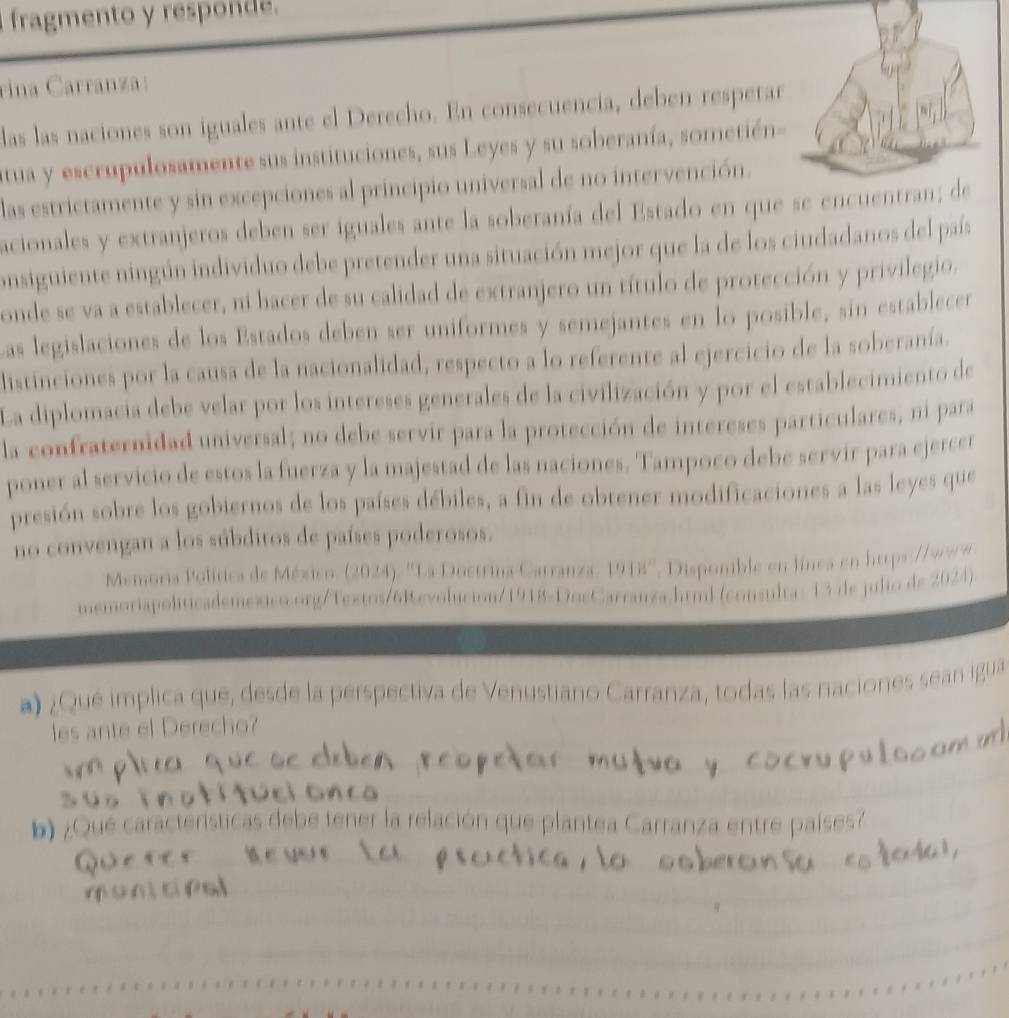 fragmento y responde.
rina Carranza:
das las naciones son iguales ante el Derecho. En consecuencia, deben respetar
tua y escrupulosamente sus instituciones, sus Leyes y su soberanía, sometién-
las estrictamente y sin excepciones al principio universal de no intervención.
acionales y extranjeros deben ser iguales ante la soberanía del Estado en que se encuentran; de
onsiguiente ningún individuo debe pretender una situación mejor que la de los ciudadanos del país
onde se va a establecer, ni hacer de su calidad de extranjero un título de protección y privilegio.
as legislaciones de los Estados deben ser uniformes y semejantes en lo posible, sin establecer
distinciones por la causa de la nacionalidad, respecto a lo referente al ejercicio de la soberanía.
La diplomacia debe velar por los intereses generales de la civilización y por el establecimiento de
la confraternidad universal; no debe servir para la protección de intereses particulares, ni para
poner al servicio de estos la fuerza y la majestad de las naciones. Tampoco debe servir para ejercer
presión sobre los gobiernos de los países débiles, a fin de obtener modificaciones a las leyes que
no convengan a los súbditos de países poderosos.
Memoria Política de México. (2024). "La Doctrina Carranza. 1918". Disponible en línea en https://www.
memoriapoliticademexico.org/Textos/6Revolucion/1918-DocCarranza.html (consulta: 13 de julio de 2024).
a) ¿Qué implica que, desde la perspectiva de Venustiano Carranza, todas las naciones sean igua
les ante el Derecho?
implica que se deben respetar mutua y escrupulosam
sus instituciones
b) ¿Qué características debe tener la relación que plantea Carranza entre países?
Querer la practica, la soberania estatal,
municipal